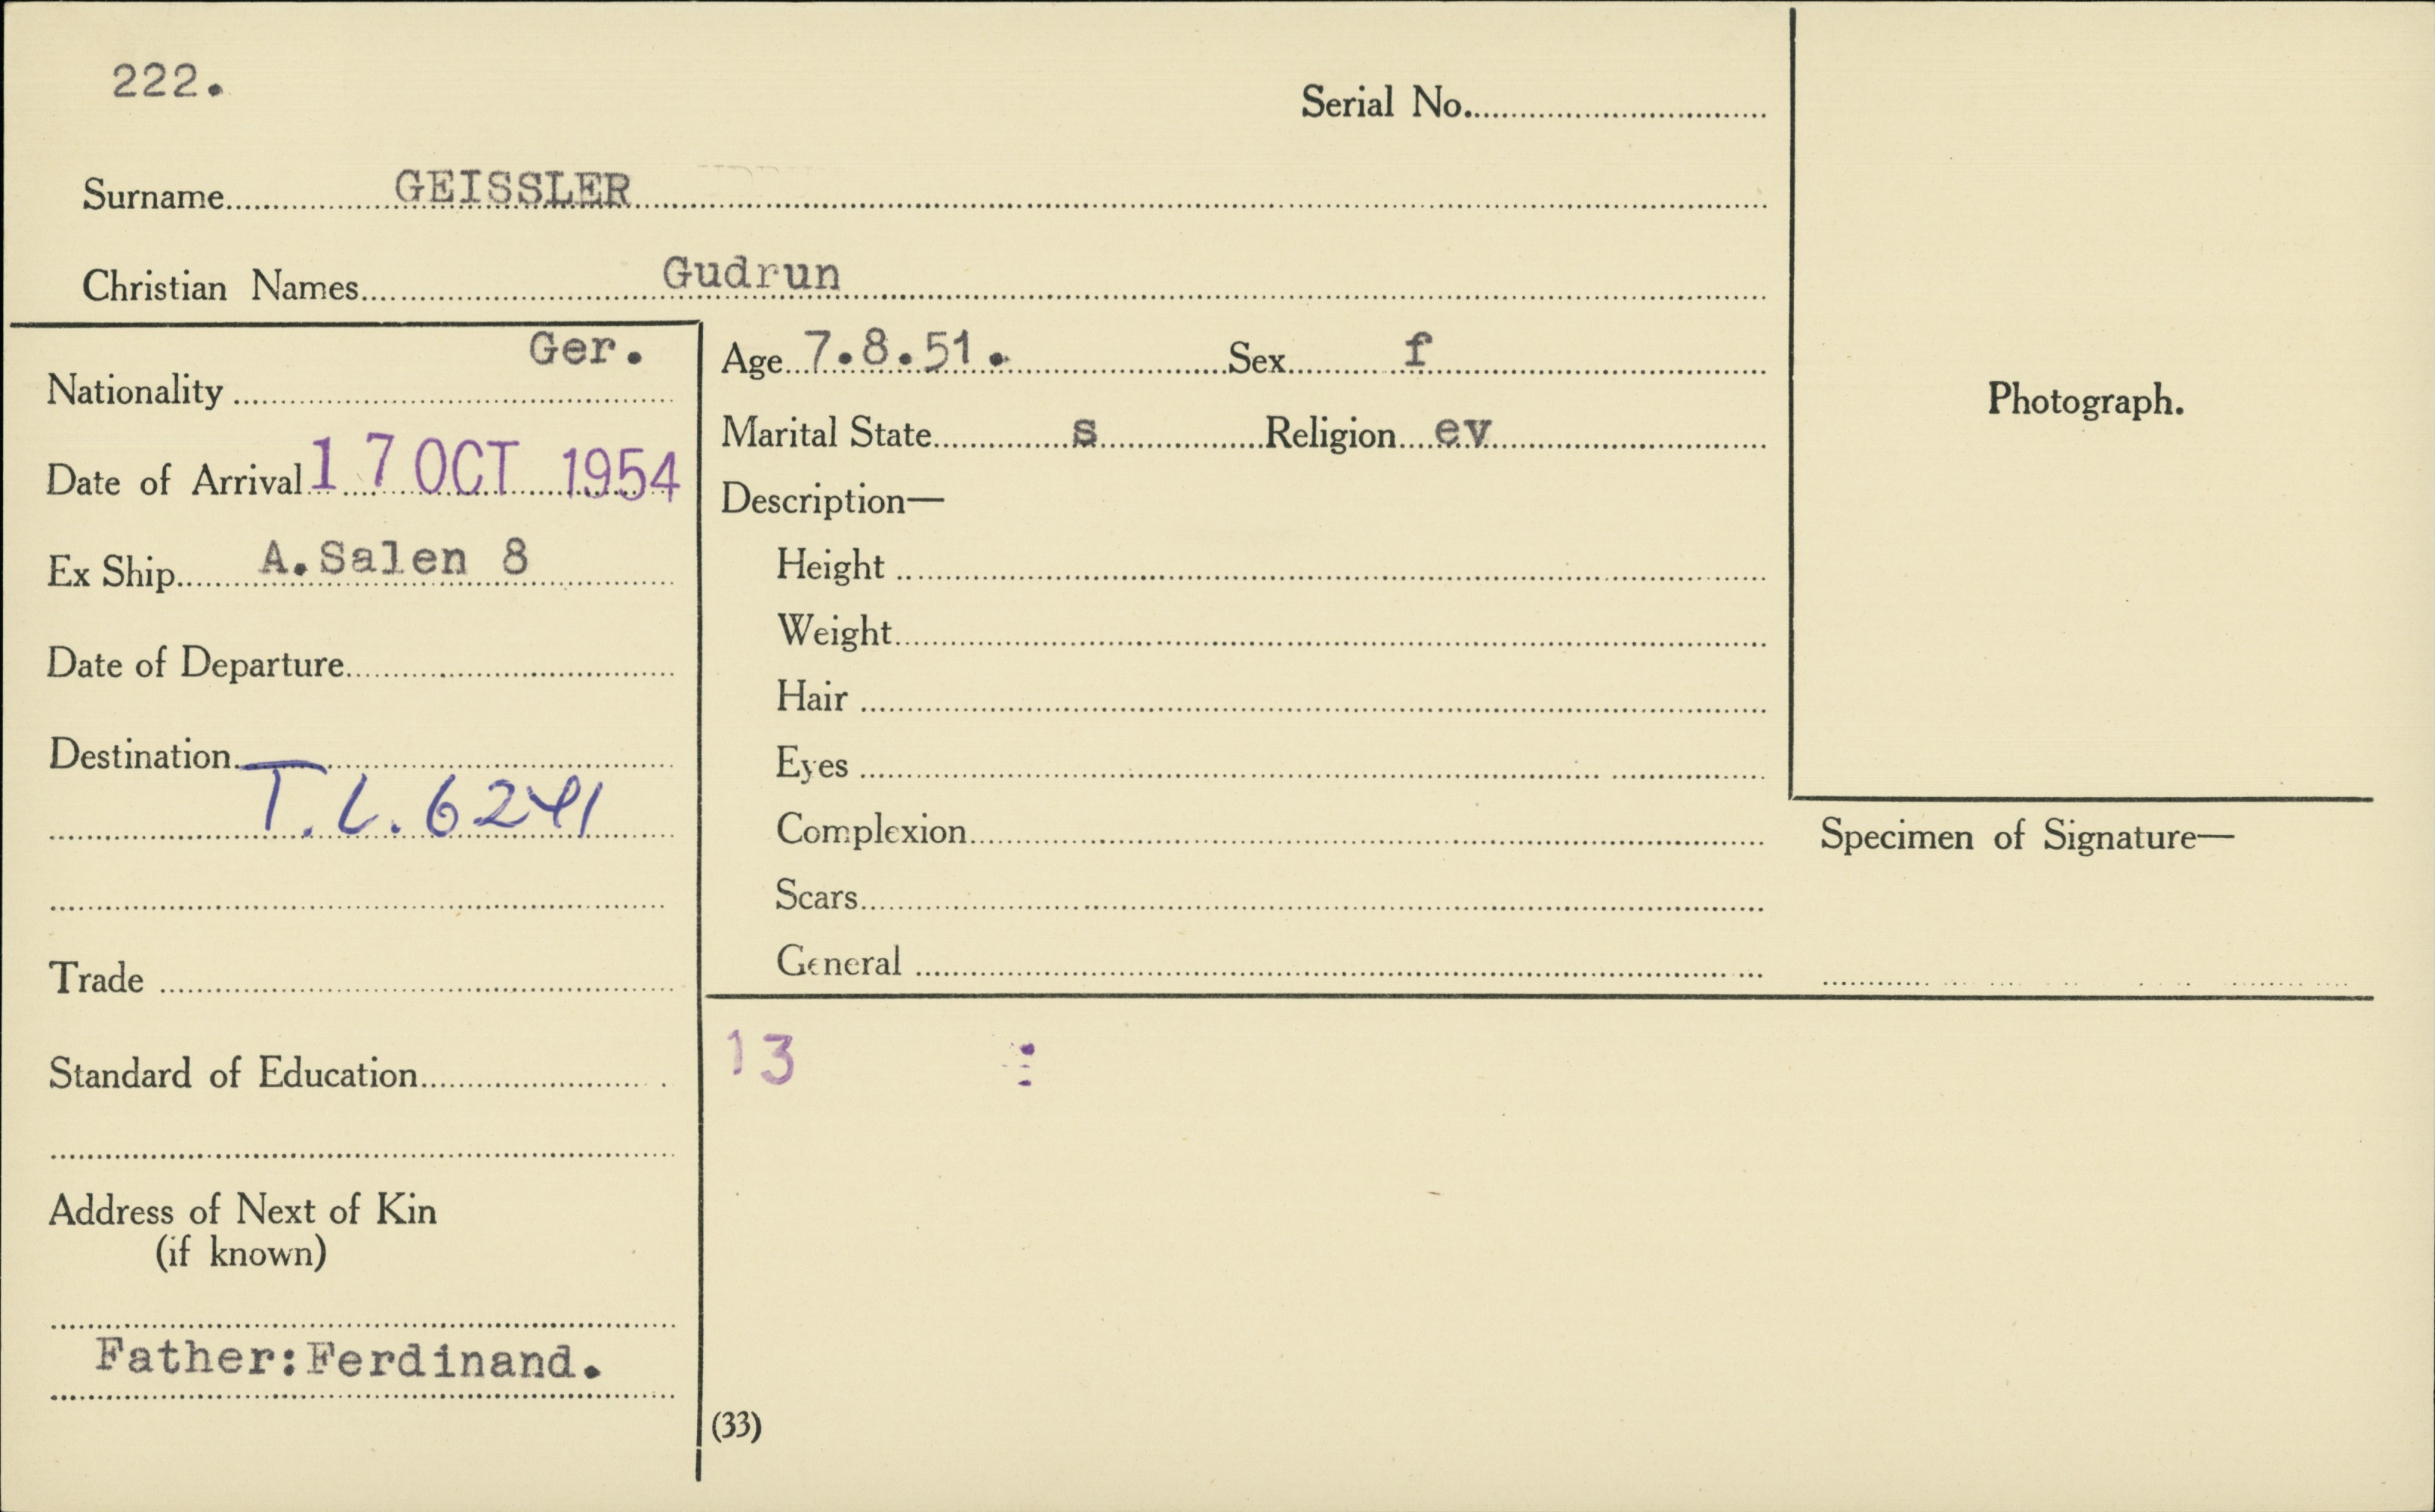 222.
Serial No.
Surname GEISSLER
Christian Names Gudrun
Nationality Ger.
Date of Arrival 17 OCT 1954
Ex Ship A.Salen 8
Date of Departure
Destination
T.L. 6241
Trade
Standard of Education
Address of Next of Kin
(if known)
Father:Ferdinand.
Age 7.8.51. Sex f
Marital State s Religion ev
Description—
Height
Weight
Hair
Eyes
Complexion
Scars
General
Photograph.
Specimen of Signature—
13
(33)